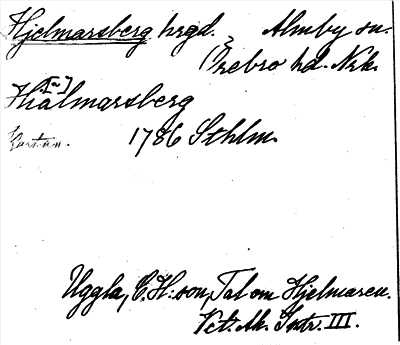 Hjelmarsberg hrgd. Almby sn.
Örebro hd. Nrk.
[~]
Hialmarsberg
1786 Sthlm
Uggla, C. H:son, Tal om Hjelmaren.
Vet. Ak. Intr. III.